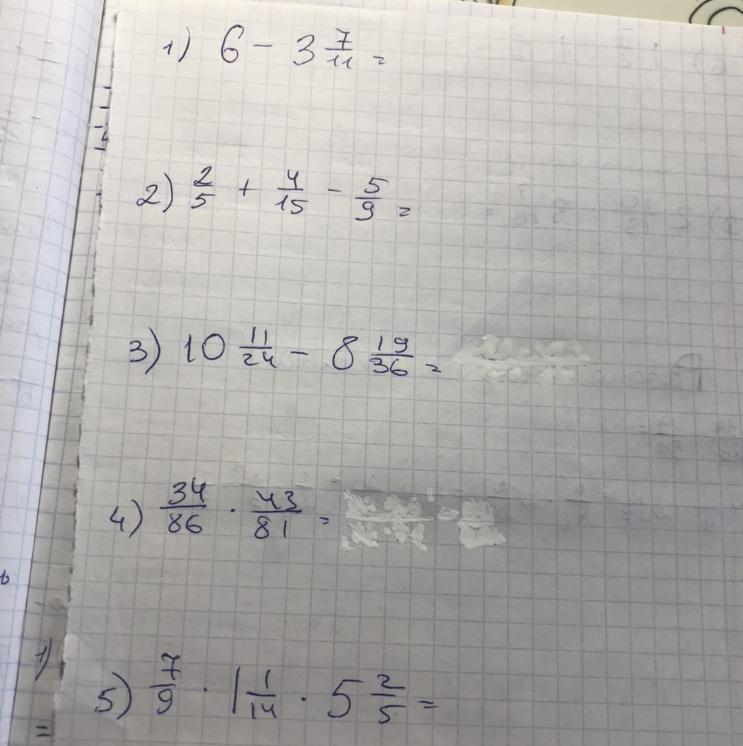 1) 6 - 3 7/11 =
2) 2/5 + 4/15 - 5/9 =
3) 10 11/24 - 8 19/36 =
4) 34/86 · 43/81 =
5) 7/9 · 1 1/14 · 5 2/5 =